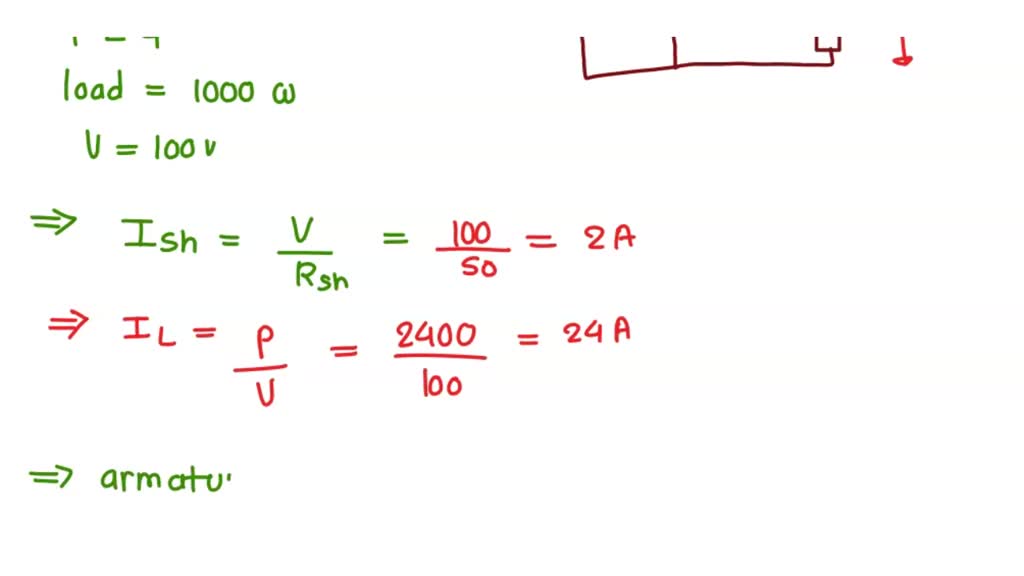 load = 1000 ω
V = 100 v
⇒ I_sh = V / R_sh = 100 / 50 = 2 A
⇒ I_L = P / V = 2400 / 100 = 24 A
⇒ armatu